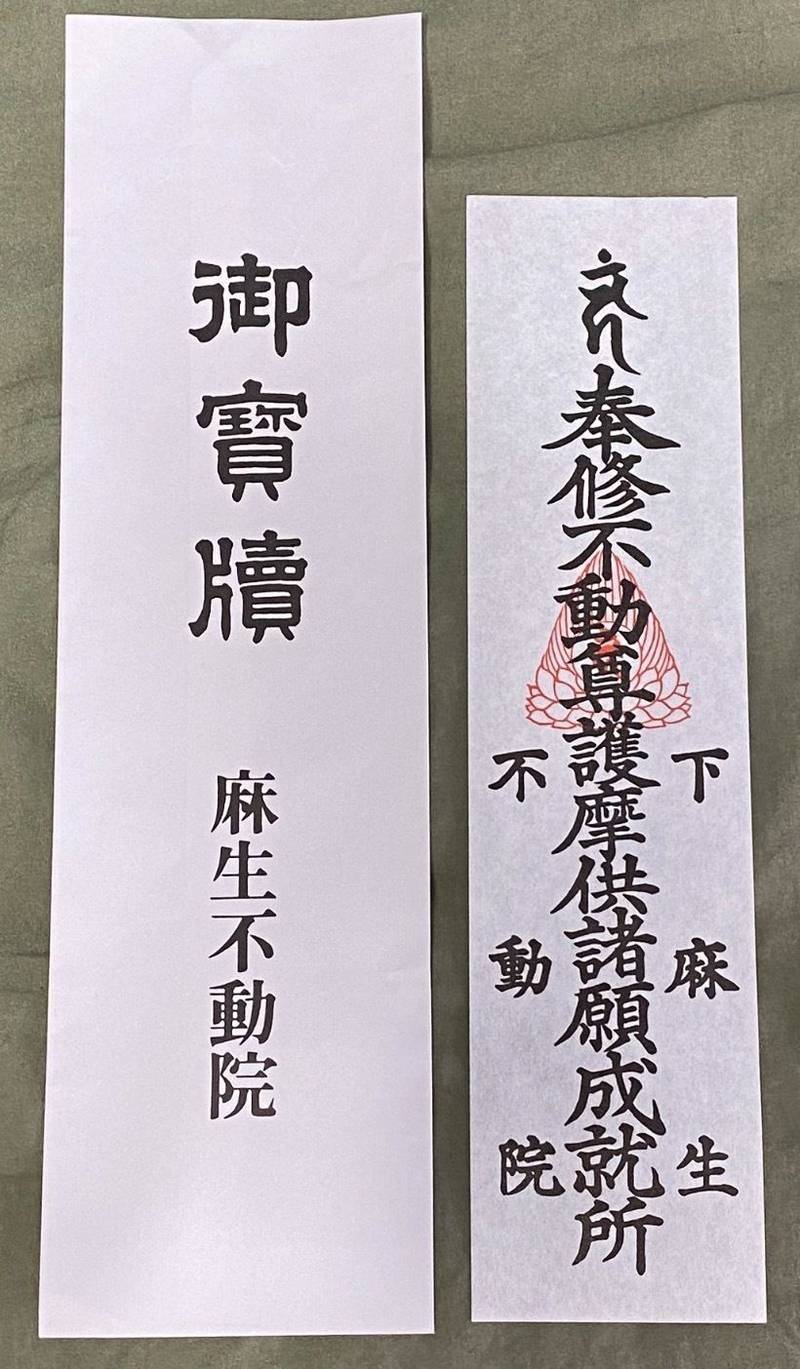 御寶牘
麻生不動院
奉修不動尊護摩供諸願成就所
下麻生
不動院